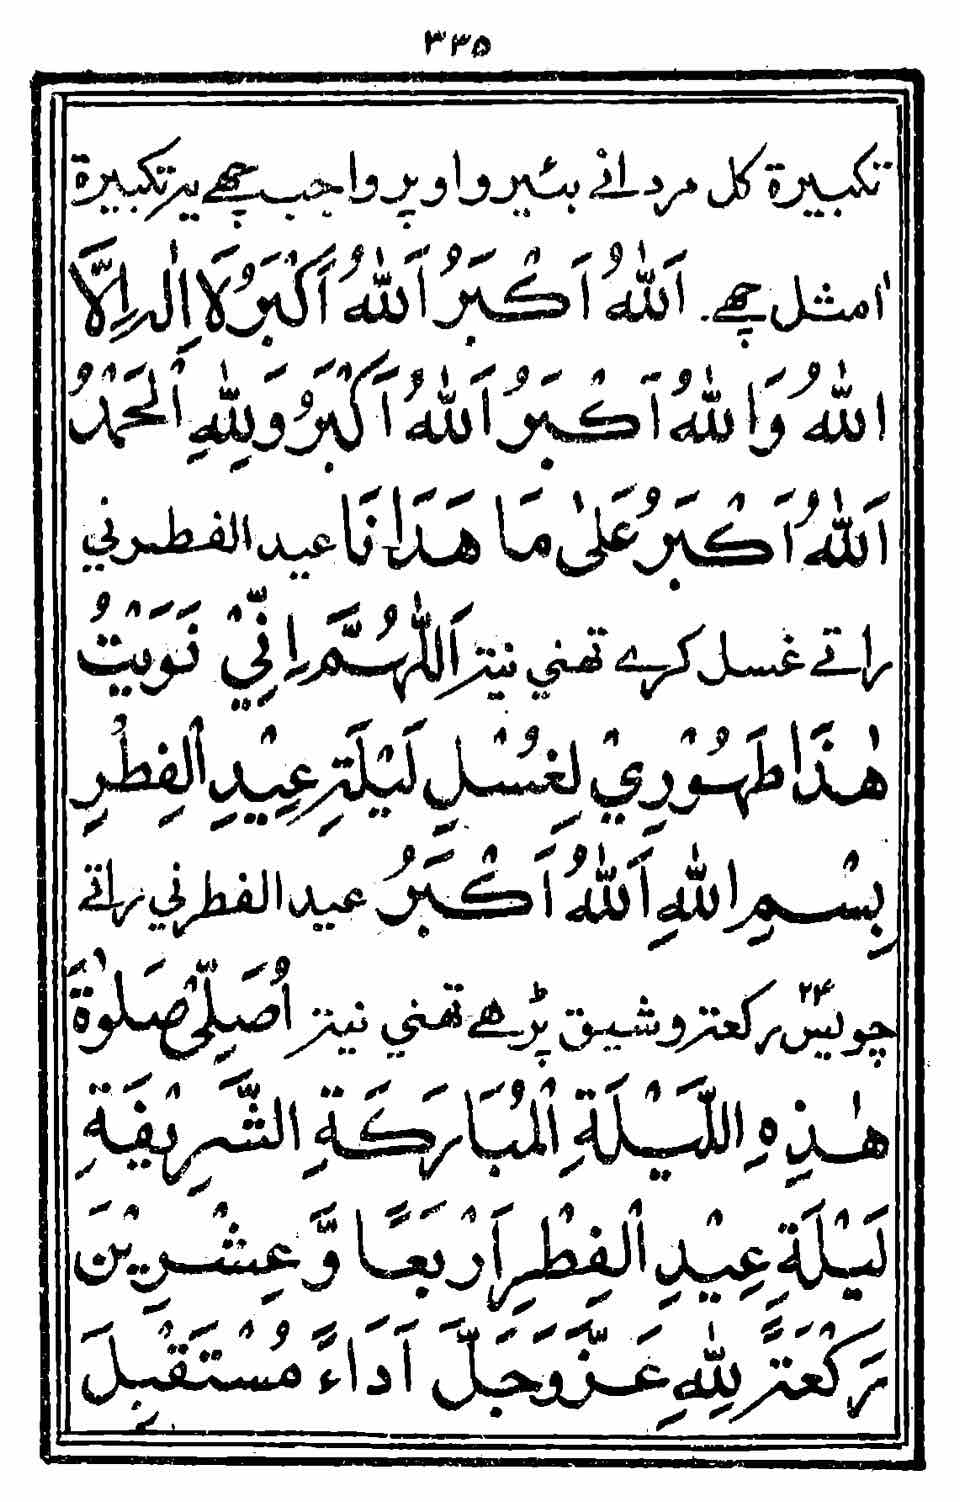 ۳۳۵
تكبيرة كل مرداني بئيرو اوپر واجب چھے ير تكبيرة
اٰمثل چھے. اَللّٰهُ اَكْبَرُ اَللّٰهُ اَكْبَرُ لَا اِلٰهَ اِلَّا
اللّٰهُ وَاللّٰهُ اَكْبَرُ اَللّٰهُ اَكْبَرُ وَلِلّٰهِ الْحَمْدُ
اَللّٰهُ اَكْبَرُ عَلىٰ مَا هَدَانَا عيد الفطرني
راتے غسل كرے تهني نيتر اَللّٰهُمَّ اِنِّيْ نَوَيْتُ
هٰذَا طَهُوْرِيْ لِغُسْلِ لَيْلَةِ عِيْدِ الْفِطْرِ
بِسْمِ اللّٰهِ اَللّٰهُ اَكْبَرُ عيد الفطرني راتے
چوبيس ۲۴ ركعتر وشيق پڑهے تهني نيتر اُصَلِّىْ صَلٰوةَ
هٰذِهِ اللَّيْلَةِ الْمُبَارَكَةِ الشَّرِيْفَةِ
لَيْلَةِ عِيْدِ الْفِطْرِ اَرْبَعًا وَّعِشْرِيْنَ
رَكْعَةً لِلّٰهِ عَزَّوَجَلَّ اَدَاءً مُسْتَقْبِلَ